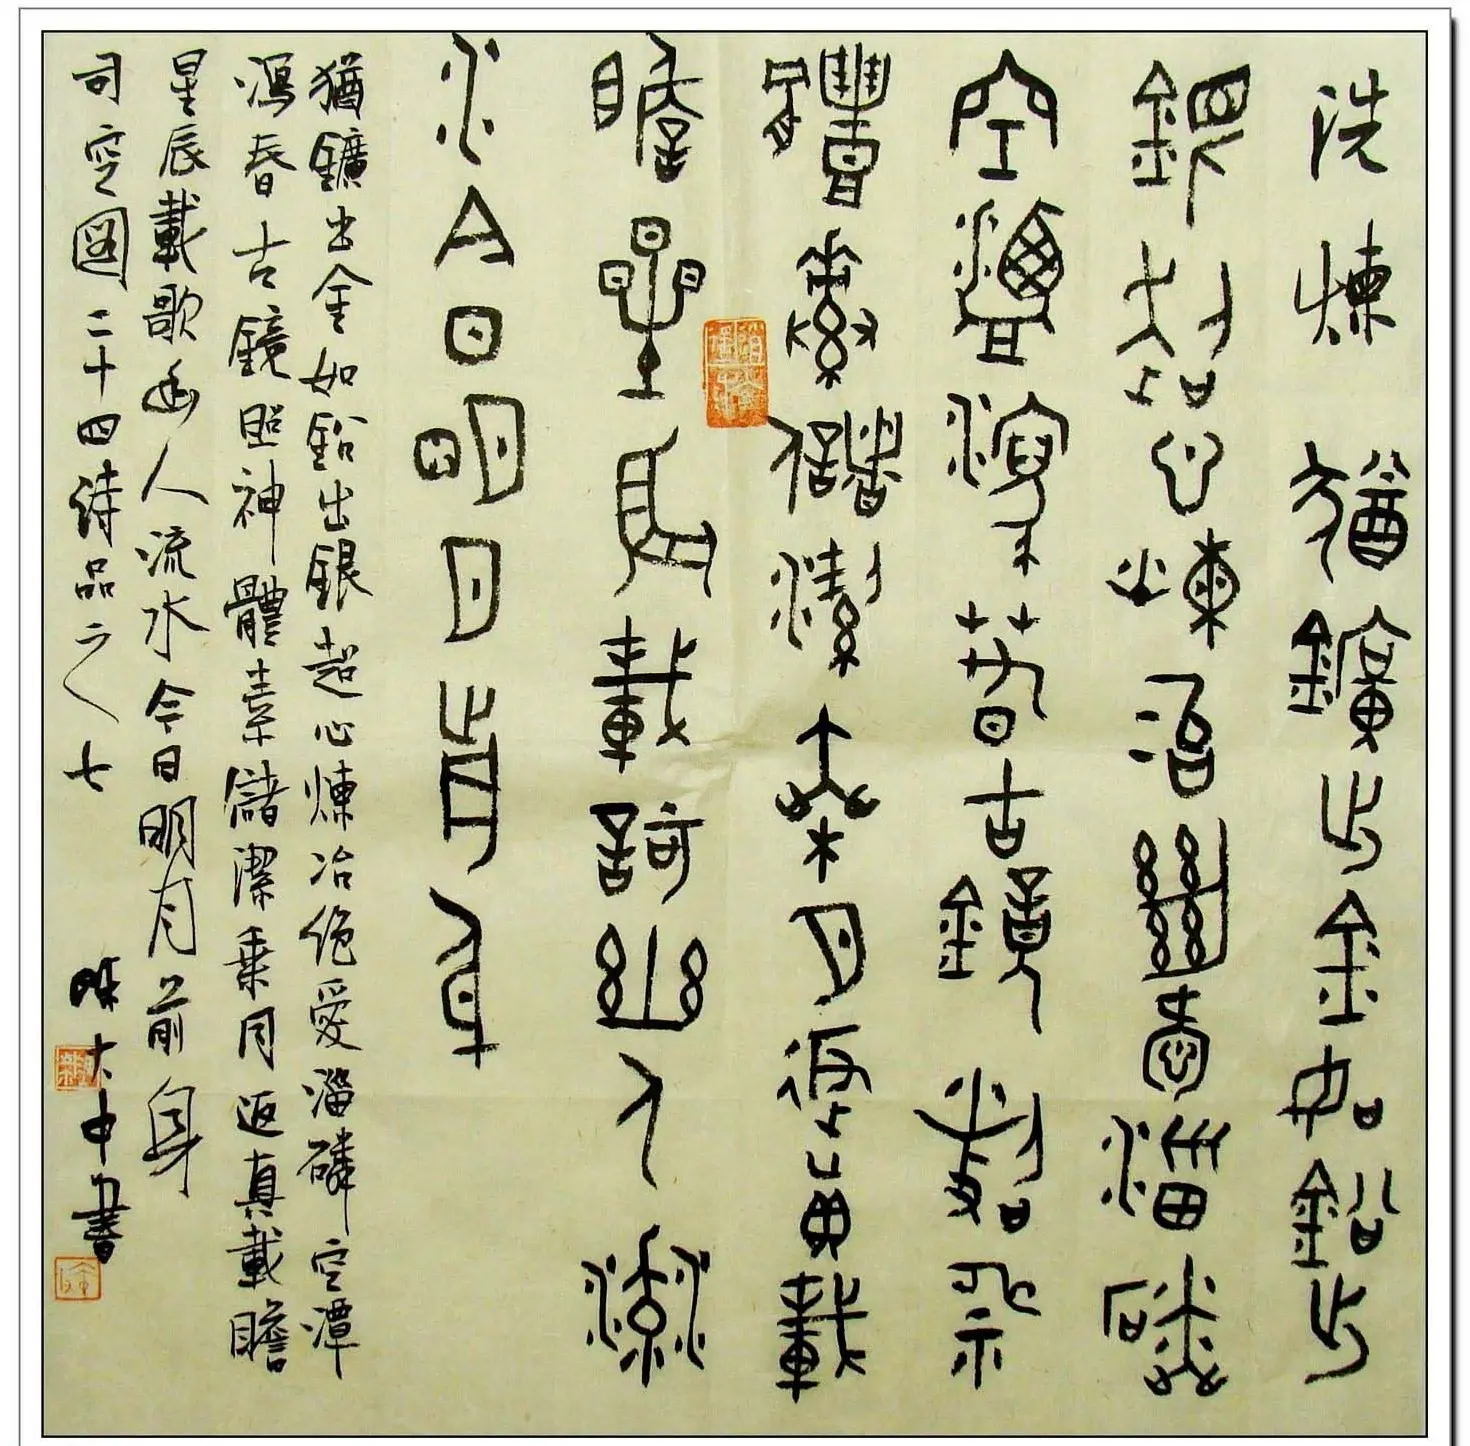 洗煉 猶鑛出金如鉛出
銀超心煉冶絕愛淄磷
空潭瀉春古鏡照神
體素儲潔乘月返真載
瞻星辰載歌幽人流
水今日明月前身
猶鑛出金如鉛出銀超心煉冶絕愛淄磷空潭
瀉春古鏡照神體素儲潔乘月返真載瞻
星辰載歌幽人流水今日明月前身
司空圖二十四詩品之七 陈大中書